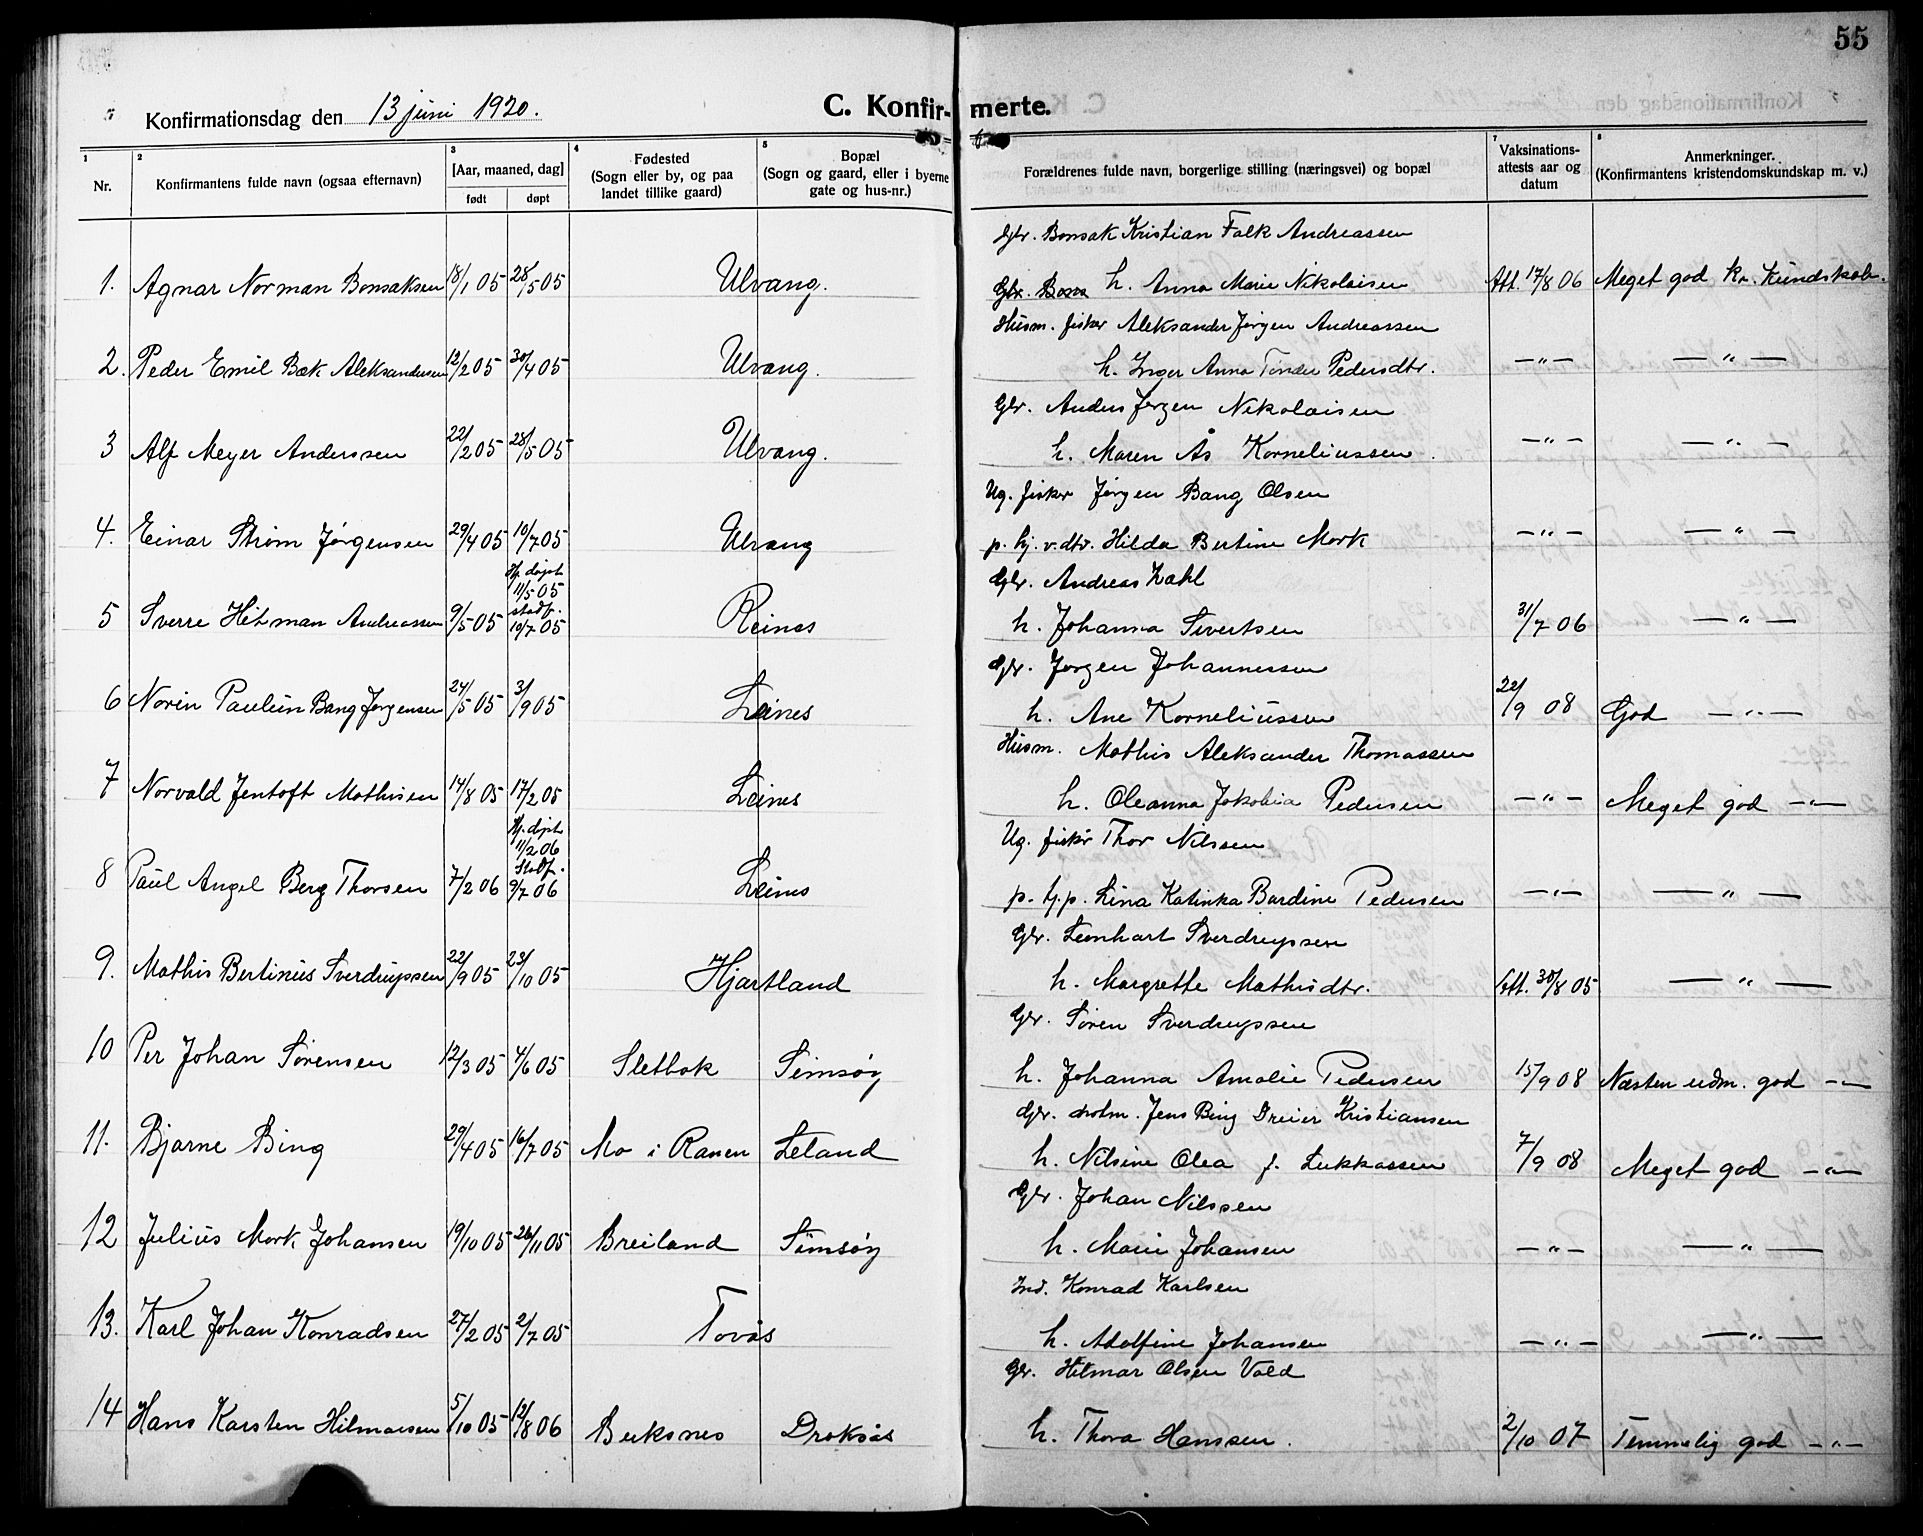 55
Konfirmationsdag den 13 juni 1920.
C. Konfir- merte.
1 2 3 4 5 7 8
Nr.
Konfirmantens fulde navn (ogsaa efternavn)
[Aar, maaned, dag]
født døpt
Fødested
(Sogn eller by, og paa
landet tillike gaard)
Bopæl
(Sogn og gaard, eller i byerne
gate og hus-nr.)
Forældrenes fulde navn, borgerlige stilling (næringsvei) og bopæl
Vaksinations-
attests aar og
datum
Anmerkninger.
(Konfirmantens kristendomskundskap m. v.)
Gbr. Bonsak Kristian Falk Andreassen
1. Agnar Norman Bonsaksen 18/1 05 28/5 05 Ulvang. h. Anna Marie Nikolaisen Att. 17/8 06 Meget god kr. kundskab.
Husm. fisker Aleksander Jørgen Andreassen
2. Peder Emil Bæk Aleksandersen 12/2 05 30/4 05 Ulvang. h. Inger Anna Tinder Pedersdtr. —"— —"—
Gbr. Anders Jørgen Nikolaisen
3 Alf Meyer Anderssen 22/2 05 28/5 05 Ulvang. h. Maren Ås Korneliussen. —"— —"—
Ug. fisker Jørgen Bang Olsen
4. Einar Strøm Jørgensen 29/4 05 10/7 05 Ulvang p. hj. v. dtr. Hilda Bertine Mork —"— —"—
Gbr. Andreas Zahl
5 Sverre Hilman Andreassen 9/5 05 Hj. døpt 11/5 05 stadf. 10/7 05 Reines h. Johanna Sivertsen 31/7 06 —"—
Gbr. Jørgen Johannessen
6 Norin Paulin Bang Jørgensen 24/5 05 3/9 05 Leines h. Ane Korneliussen 22/9 08 God —"—
Husm. Mathis Aleksander Thomassen
7 Norvald Jentoft Mathisen 14/8 05 17/2 05 Leines h. Oleanna Jakobia Pedersen —"— Meget god —"—
Ug. fisker Thor Nilssen
8 Paul Angel Berg Thorsen 7/2 06 Hj. døpt 11/2 06 Stadf. 9/7 06 Leines p. hj. p. Lina Katinka Bardine Pedersen —"— —"—
Gbr. Leonhart Sverdrupssen
9. Mathis Bertinus Sverdrupssen 22/9 05 23/10 05 Hjartland h. Margrethe Mathisdtr. Att. 30/8 05 —"—
Gbr. Søren Sverdrupssen
10 Per Johan Sørensen 12/3 05 4/6 05 Sletbak Simsøy h. Johanna Amalie Pedersen 15/9 08 Næsten udm. god —"—
Gbr. Jens Bing Dreier Kristiansen
11. Bjarne Bing 29/4 05 16/7 05 Mo i Ranen Leland h. Nilsine Olea f. Lukkassen 7/9 08 Meget god —"—
Gbr. Johan Nilssen
12 Julius Mork Johansen 19/10 05 26/11 05 Breiland Simsøy h. Marie Johansen —"— —"—
Ind. Konrad Karlsen
13. Karl Johan Konradsen 27/2 05 2/7 05 Tovås h. Adolfine Johansen —"— —"—
Gbr. Hilmar Olsen Vold
14 Hans Karsten Hilmarsen 5/10 05 12/8 06 Buksnes Draksås h. Thora Hanssen. 2/10 07 Temmelig god —"—